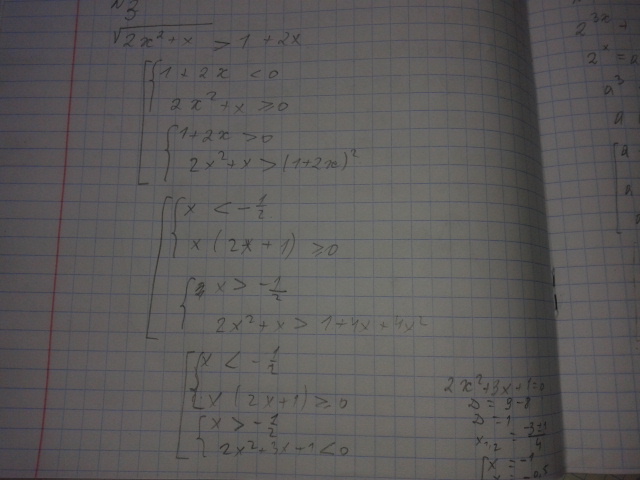 №3
√(2x²+x) > 1 + 2x
1 + 2x < 0
2x² + x ≥ 0
1 + 2x > 0
2x² + x > (1+2x)²
x < -1/2
x (2x + 1) ≥ 0
x > -1/2
2x² + x > 1 + 4x + 4x²
x < -1/2
x (2x + 1) ≥ 0
x > -1/2
2x² + 3x + 1 < 0
2x² + 3x + 1 = 0
D = 9 - 8
D = 1
x = (-3±1)/4
x = -1
x = -0,5
2^3x +
2^x = a
a³
a